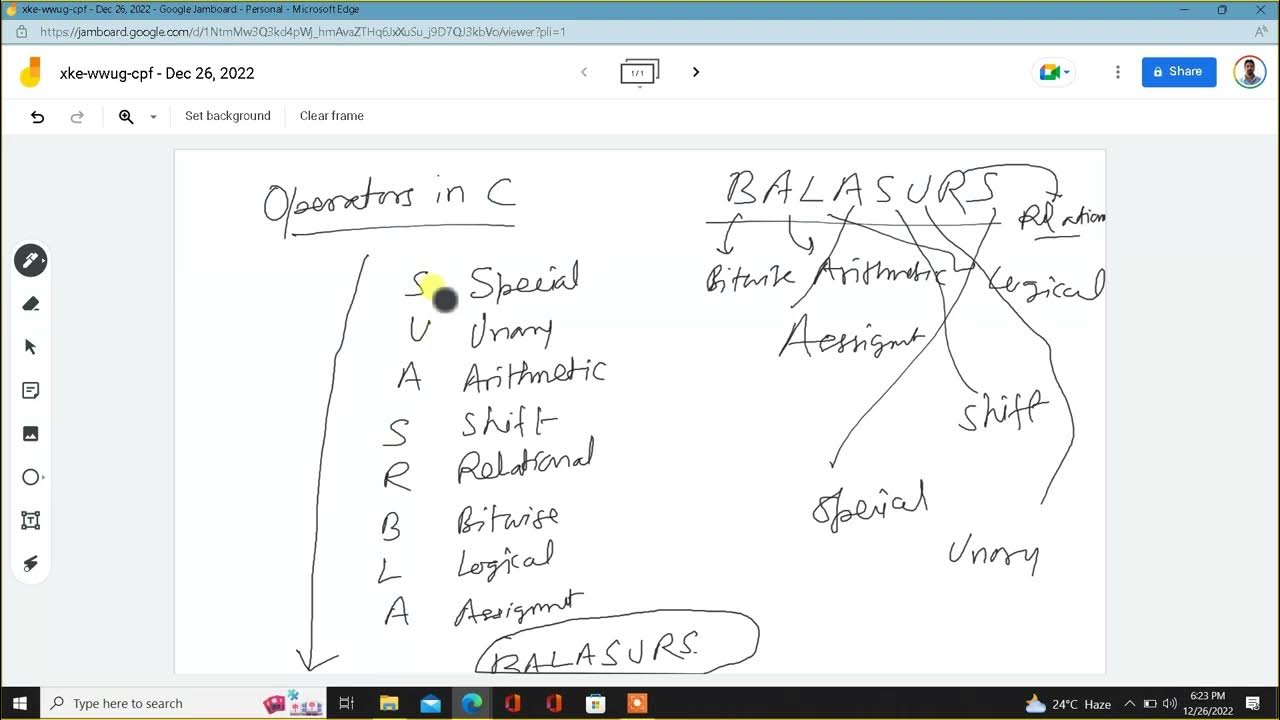 xke-wwug-cpf - Dec 26, 2022 - Google Jamboard - Personal - Microsoft Edge
https://jamboard.google.com/d/1NtmMw3Q3kd4pWJ_hmAvaZTHq6JxXuSu_j9D7QJ3kbVo/viewer?pli=1
xke-wwug-cpf - Dec 26, 2022
1/1
Share
Set background
Clear frame
Operators in C
S Special
U Unary
A Arithmetic
S Shift
R Relational
B Bitwise
L Logical
A Assigmt
BALASURS
BALASURS
Bitwise Arithmetic Logical
Assigmt
Shift
Special
Unary
Type here to search
24°C Haze
6:23 PM
12/26/2022